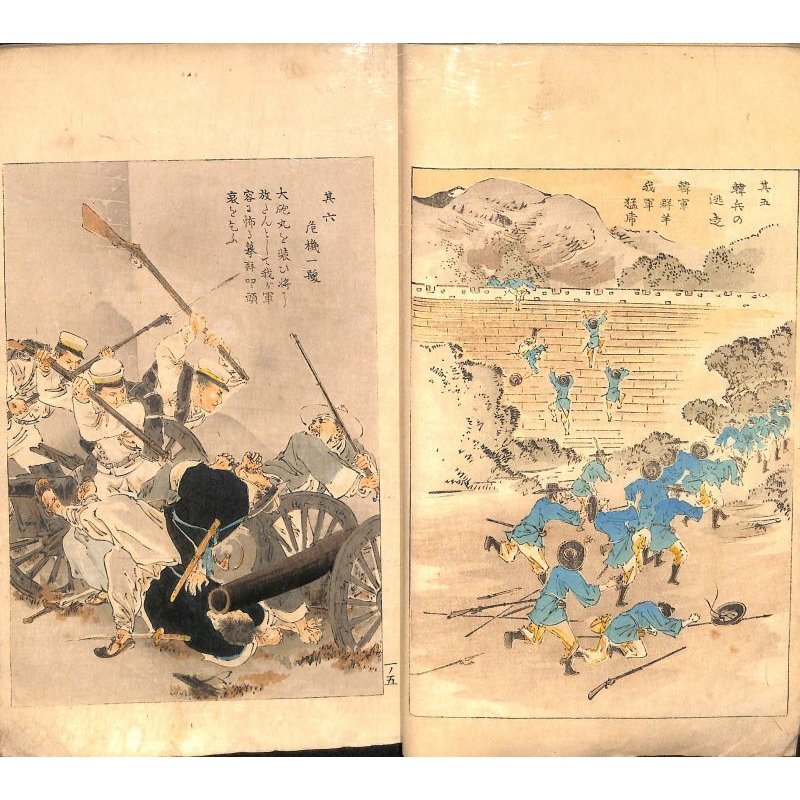 其五
韓兵の
逃走
韓軍
群羊
我軍
猛虎
其六
危機一髪
大砲丸を装ひ将に
放さんとして我が軍
容に怖る
叩頭
哀を乞ふ
一ノ五